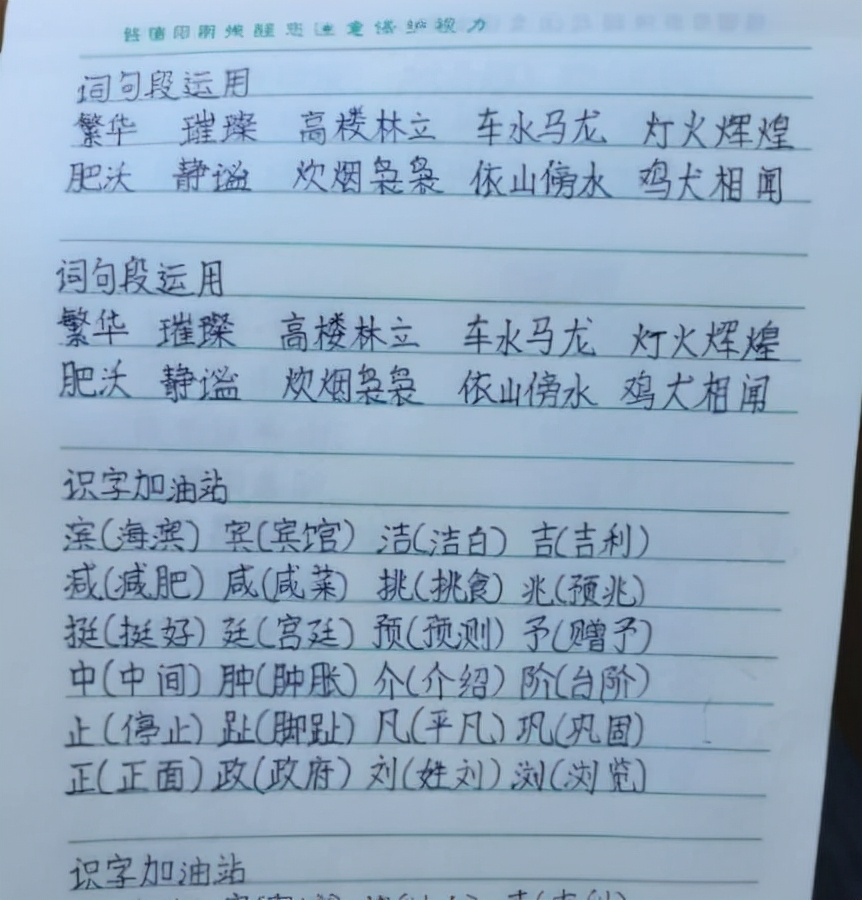 词句段运用
繁华 璀璨 高楼林立 车水马龙 灯火辉煌
肥沃 静谧 炊烟袅袅 依山傍水 鸡犬相闻
词句段运用
繁华 璀璨 高楼林立 车水马龙 灯火辉煌
肥沃 静谧 炊烟袅袅 依山傍水 鸡犬相闻
识字加油站
滨(海滨) 宾(宾馆) 洁(洁白) 吉(吉利)
减(减肥) 咸(咸菜) 挑(挑食) 兆(预兆)
挺(挺好) 廷(宫廷) 预(预测) 予(赠予)
中(中间) 肿(肿胀) 介(介绍) 阶(台阶)
止(停止) 趾(脚趾) 凡(平凡) 巩(巩固)
正(正面) 政(政府) 刘(姓刘) 浏(浏览)
识字加油站